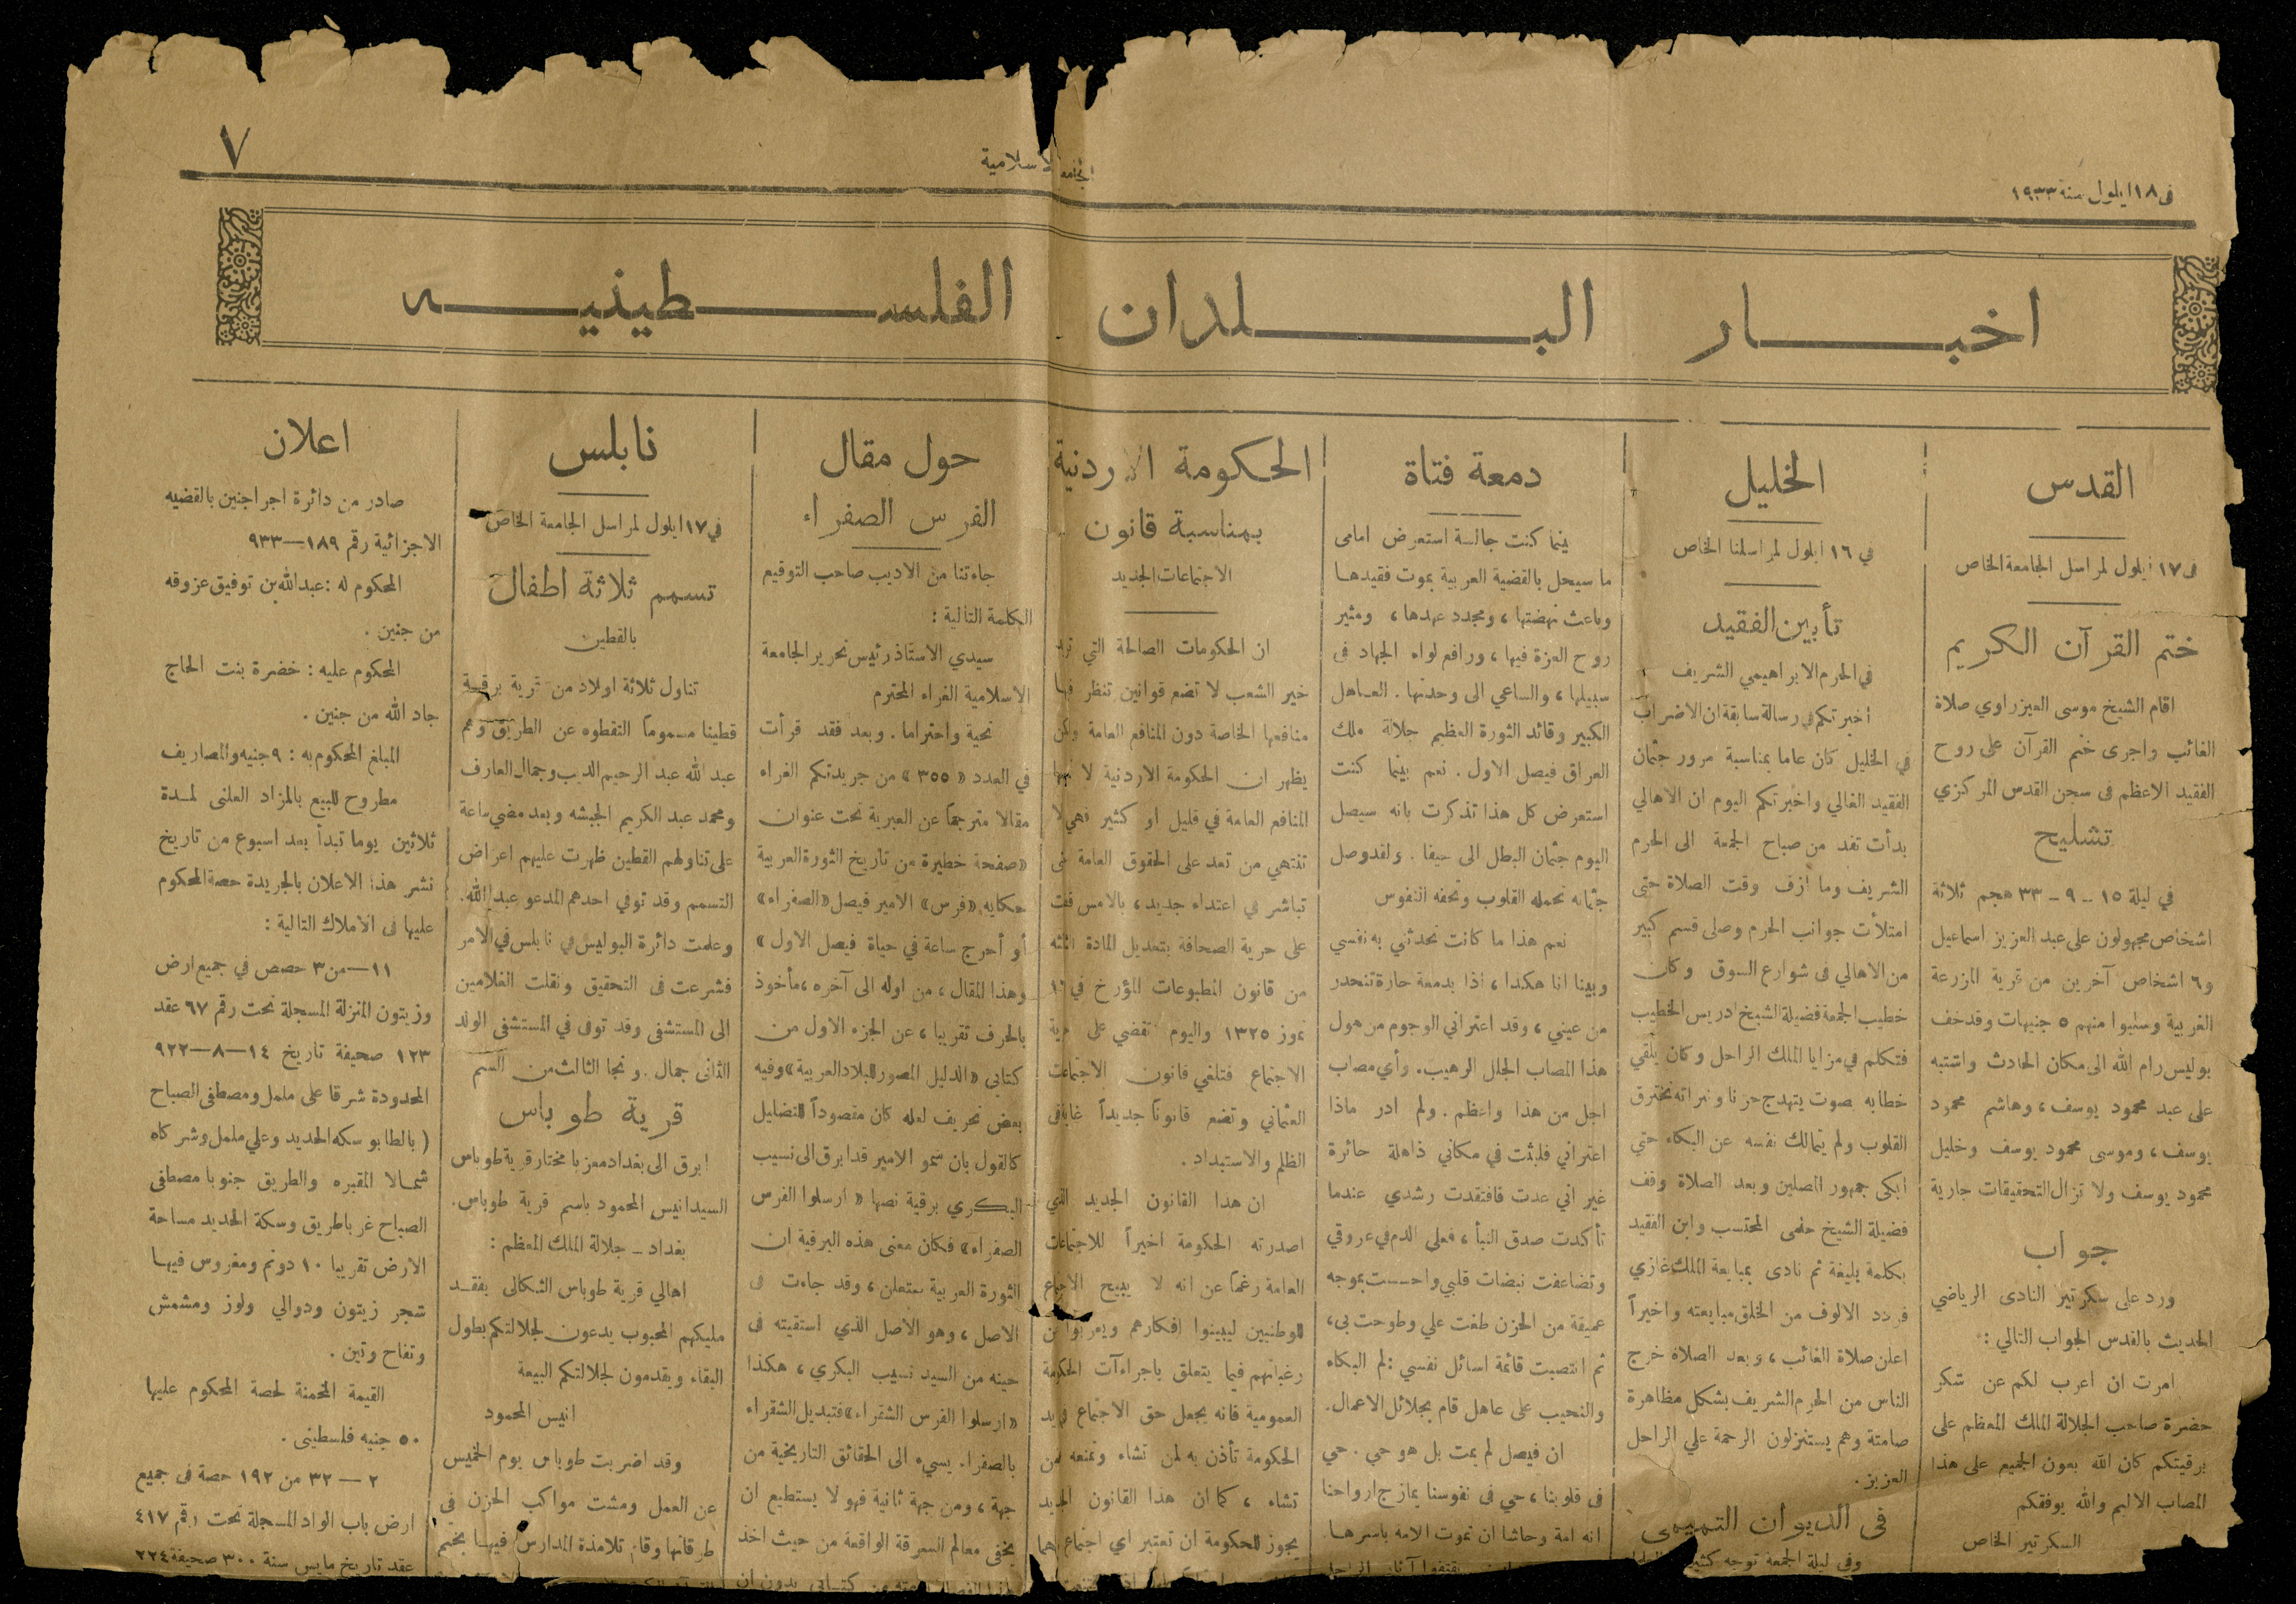 في ١٨ ايلول سنة ١٩٣٣
الجامعة الاسلامية
٧
اخبار البلدان الفلسطينيه
القدس
في ١٧ ايلول لمراسل الجامعة الخاص
ختم القرآن الكريم
اقام الشيخ موسى العيزراوي صلاة
الغائب واجرى ختم القرآن على روح
الفقيد الاعظم في سجن القدس المركزي
تشليح
في ليلة ١٥ - ٩ - ٣٣ هجم ثلاثة
اشخاص مجهولون على عبد العزيز اسماعيل
و٦ اشخاص آخرين من قرية المزرعة
الغربية وسلبوا منهم ٥ جنيهات وقد خف
بوليس رام الله الى مكان الحادث واشتبه
على عبد محمود يوسف، وهاشم محمود
يوسف، وموسى محمود يوسف وخليل
محمود يوسف ولا تزال التحقيقات جارية
جواب
ورد على سكرتير النادى الرياضي
الحديث بالقدس الجواب التالي:
امرت ان اعرب لكم عن شكر
حضرة صاحب الجلالة الملك المعظم على
برقيتكم كان الله بعون الجميع على هذا
المصاب الاليم والله يوفقكم
السكرتير الخاص
الخليل
في ١٦ ايلول لمراسلنا الخاص
تأبين الفقيد
في الحرم الابراهيمي الشريف
اخبرتكم في رسالة سابقة ان الاضراب
في الخليل كان عاما بمناسبة مرور جثمان
الفقيد الغالي واخبرتكم اليوم ان الاهالي
بدأت تفد من صباح الجمعة الى الحرم
الشريف وما ازف وقت الصلاة حتى
امتلأت جوانب الحرم وصلى قسم كبير
من الاهالي في شوارع السوق وكان
خطيب الجمعة فضيلة الشيخ ادريس الخطيب
فتكلم في مزايا الملك الراحل وكان يلقي
خطابه بصوت يتهدج حزنا ونبراته تخترق
القلوب ولم يتمالك نفسه عن البكاء حتى
ابكى جمهور المصلين وبعد الصلاة وقف
فضيلة الشيخ حلمى المحتسب وابن الفقيد
بكلمة بليغة ثم نادى بمبايعة الملك غازي
فردد الالوف من الخلق مبايعته واخيراً
اعلن صلاة الغائب، وبعد الصلاة خرج
الناس من الحرم الشريف بشكل مظاهرة
صامتة وهم يستنزلون الرحمة على الراحل
العزيز.
في الديوان التميمى
وفي ليلة الجمعة توجه
دمعة فتاة
بينما كنت جالسة استعرض امامى
ما سيحل بالقضية العربية بموت فقيدها
وباعث نهضتها، ومجدد عهدها، ومثير
روح العزة فيها، ورافع لواء الجهاد في
سبيلها، والساعي الى وحدتها. العاهل
الكبير وقائد الثورة العظيم جلالة ملك
العراق فيصل الاول. نعم بينما كنت
استعرض كل هذا تذكرت بانه سيصل
اليوم جثمان البطل الى حيفا. ولقد وصل
جثمانه تحمله القلوب وتحفه النفوس
نعم هذا ما كانت تحدثني به نفسي
وبينا انا هكذا، اذا بدمعة حارة تنحدر
من عيني، وقد اعتراني الوجوم من هول
هذا المصاب الجلل الرهيب. وأي مصاب
اجل من هذا واعظم. ولم ادر ماذا
اعتراني فلبثت في مكاني ذاهلة حائرة
غير اني عدت فافتقدت رشدي عندما
تأكدت صدق النبأ، فغلى الدم في عروقي
وتضاعفت نبضات قلبي واحسست بموجه
عميقة من الحزن طغت علي وطوحت بى،
ثم انتصبت قائمة اسائل نفسي: لم البكاء
والنحيب على عاهل قام بجلائل الاعمال.
ان فيصل لم يمت بل هو حي. حي
فى قلوبنا، حي فى نفوسنا يمازج ارواحنا
انه امة وحاشا ان تموت الامه باسرها.
الحكومة الاردنية
بمناسبة قانون
الاجتماعات الجديد
ان الحكومات الصالحة التي تريد
خير الشعب لا تضع قوانين تنظر فيها
منافعها الخاصة دون المنافع العامة ولكن
يظهر ان الحكومة الاردنية لا تهمها
المنافع العامة في قليل او كثير فهي لا
تنتهي من تعد على الحقوق العامة حتى
تباشر في اعتداء جديد، بالامس قضت
على حرية الصحافة بتعديل المادة
من قانون المطبوعات المؤرخ في ١٦
تموز ١٣٢٥ واليوم تقضي على حرية
الاجتماع فتلغي قانون الاجتماعات
العثماني وتضع قانوناً جديداً غاية في
الظلم والاستبداد.
ان هذا القانون الجديد الذي
اصدرته الحكومة اخيراً للاجتماعات
العامة رغماً عن انه لا يبيح الاجتماع
للوطنيين ليبينوا افكارهم ويعربوا عن
رغباتهم فيما يتعلق باجراءآت الحكومة
العمومية فانه يجعل حق الاجتماع بيد
الحكومة تأذن به لمن تشاء وتمنعه عمن
تشاء، كما ان هذا القانون الجديد
يجوز للحكومة ان تعتبر اي اجتماع
حول مقال
الفرس الصفراء
جاءتنا من الاديب صاحب التوقيع
الكلمة التالية:
سيدي الاستاذ رئيس تحرير الجامعة
الاسلامية الغراء المحترم
تحية واحتراما. وبعد فقد قرأت
في العدد «٣٥٥» من جريدتكم الغراء
مقالا مترجماً عن العبرية تحت عنوان
«صفحة خطيرة من تاريخ الثورة العربية
حكاية «فرس» الامير فيصل «الصفراء»
أو أحرج ساعة في حياة فيصل الاول»
وهذا المقال، من اوله الى آخره، مأخوذ
بالحرف تقريبا، عن الجزء الاول من
كتابي «الدليل المصور للبلاد العربية» وفيه
بعض تحريف لعله كان مقصوداً للتضليل
كالقول بان سمو الامير قد ابرق الى نسيب
البكري برقية نصها «ارسلوا الفرس
الصفراء» فكان معنى هذه البرقية ان
الثورة العربية ستعلن، وقد جاءت في
الاصل، وهو الاصل الذي استقيته في
حينه من السيد نسيب البكري، هكذا
«ارسلوا الفرس الشقراء» فتبديل الشقراء
بالصفراء يسيء الى الحقائق التاريخية من
جهة، ومن جهة ثانية فهو لا يستطيع ان
يخفى معالم السرقة الواقعة من حيث اخذ
نابلس
في ١٧ ايلول لمراسل الجامعة الخاص
تسمم ثلاثة اطفال
بالقطين
تناول ثلاثة اولاد من قرية برقة
قطينا مسموماً التقطوه عن الطريق وهم
عبد الله عبد الرحيم الديب وجمال العارف
ومحمد عبد الكريم الجبشه وبعد مضي ساعة
على تناولهم القطين ظهرت عليهم اعراض
التسمم وقد توفي احدهم المدعو عبد الله.
وعلمت دائرة البوليس في نابلس في الامر
فشرعت في التحقيق ونقلت الغلامين
الى المستشفى وقد توفى في المستشفى الولد
الثانى جمال. ونجا الثالث من السم
قرية طوباس
ابرق الى بغداد معزيا مختار قرية طوباس
السيد انيس المحمود باسم قرية طوباس.
بغداد - جلالة الملك المعظم:
اهالي قرية طوباس الثكالى بفقد
مليكهم المحبوب يدعون لجلالتكم بطول
البقاء ويقدمون لجلالتكم البيعة
انيس المحمود
وقد اضربت طوباس يوم الخميس
عن العمل ومشت مواكب الحزن في
طرقاتها وقام تلامذة المدارس فيها بختم
اعلان
صادر من دائرة اجرا جنين بالقضيه
الاجزائية رقم ١٨٩—٩٣٣
المحكوم له: عبد الله بن توفيق عزوقه
من جنين.
المحكوم عليه: خضرة بنت الحاج
جاد الله من جنين.
المبلغ المحكوم به: ٩ جنيه والمصاريف
مطروح للبيع بالمزاد العلنى لمدة
ثلاثين يوما تبدأ بعد اسبوع من تاريخ
نشر هذا الاعلان بالجريدة حصة المحكوم
عليها في الاملاك التالية:
١—١ من ٣ حصص في جميع ارض
وزيتون المنزلة المسجلة تحت رقم ٦٧ عقد
١٢٣ صحيفة تاريخ ١٤—٨—٩٢٢
المحدودة شرقا على ململ ومصطفى الصباح
(بالطابو سكه الحديد وعلي ململ وشركاه
شمالا المقبره والطريق جنوبا مصطفى
الصباح غربا طريق وسكة الحديد مساحة
الارض تقريبا ١٠ دونم ومغروس فيها
شجر زيتون ودوالي ولوز ومشمش
وتفاح وتين.
القيمة المخمنة لحصة المحكوم عليها
٥٠ جنيه فلسطينى.
٢ — ٣٢ من ١٩٢ حصة في جميع
ارض باب الواد المسجلة تحت رقم ٤١٧
عقد تاريخ مايس سنة ٣٠٠ صحيفة ٢٢٤